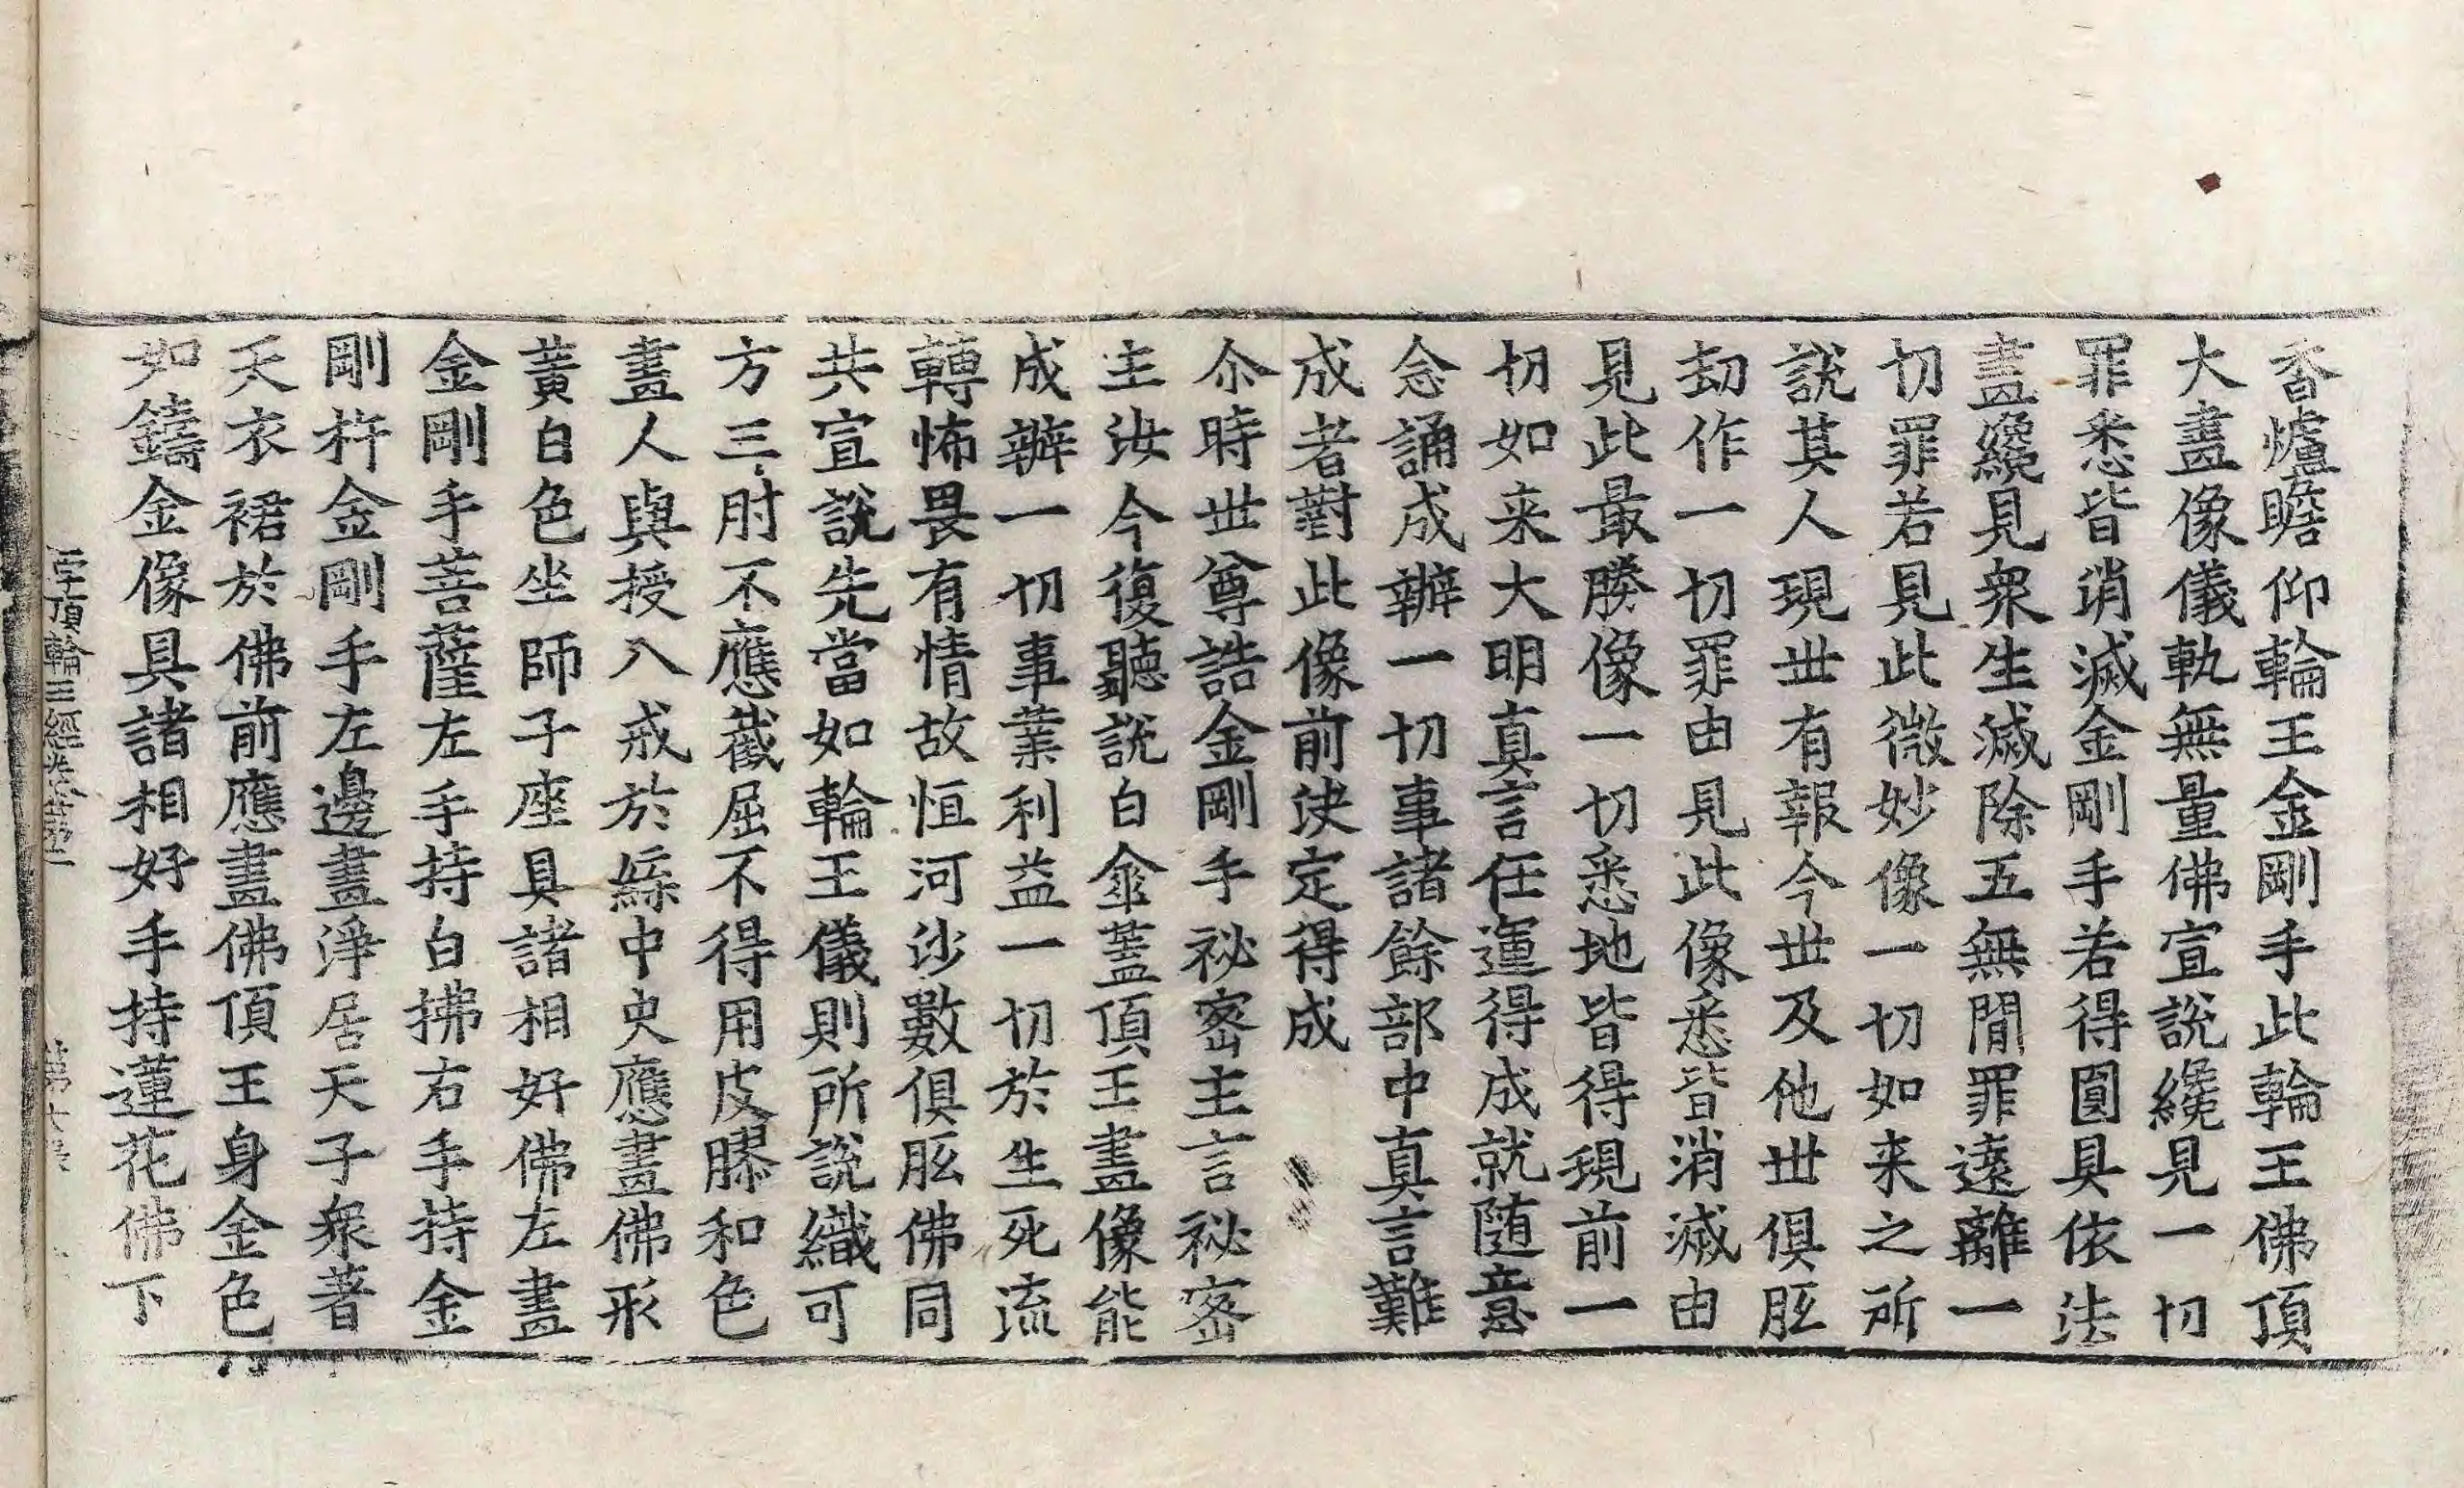 香爐瞻仰輪王金剛手此輪王佛頂
大畫像儀軌無量佛宣說纔見一切
罪悉皆消滅金剛手若得圓具依法
畫纔見衆生滅除五無間罪遠離一
切罪若見此微妙像一切如来之所
說其人現世有報今世及他世俱胝
劫作一切罪由見此像悉皆消滅由
見此最勝像一切悉地皆得現前一
切如来大明真言任運得成就随意
念誦成辦一切事諸餘部中真言難
成者對此像前決定得成
尒時世尊誥金剛手祕密主言祕密
主汝今復聽說白傘蓋頂王畫像能
成辦一切事業利益一切於生死流
轉怖畏有情故恒河沙數俱胝佛同
共宣說先當如輪王儀則所說織可
方三肘不應截屈不得用皮膠和色
畫人與授八戒於緜中央應畫佛形
黃白色坐師子座具諸相好佛左畫
金剛手菩薩左手持白拂右手持金
剛杵金剛手左邊畫淨居天子衆著
天衣裙於佛前應畫佛頂王身金色
如鑄金像具諸相好手持蓮花佛下
字頂輪王經卷第二